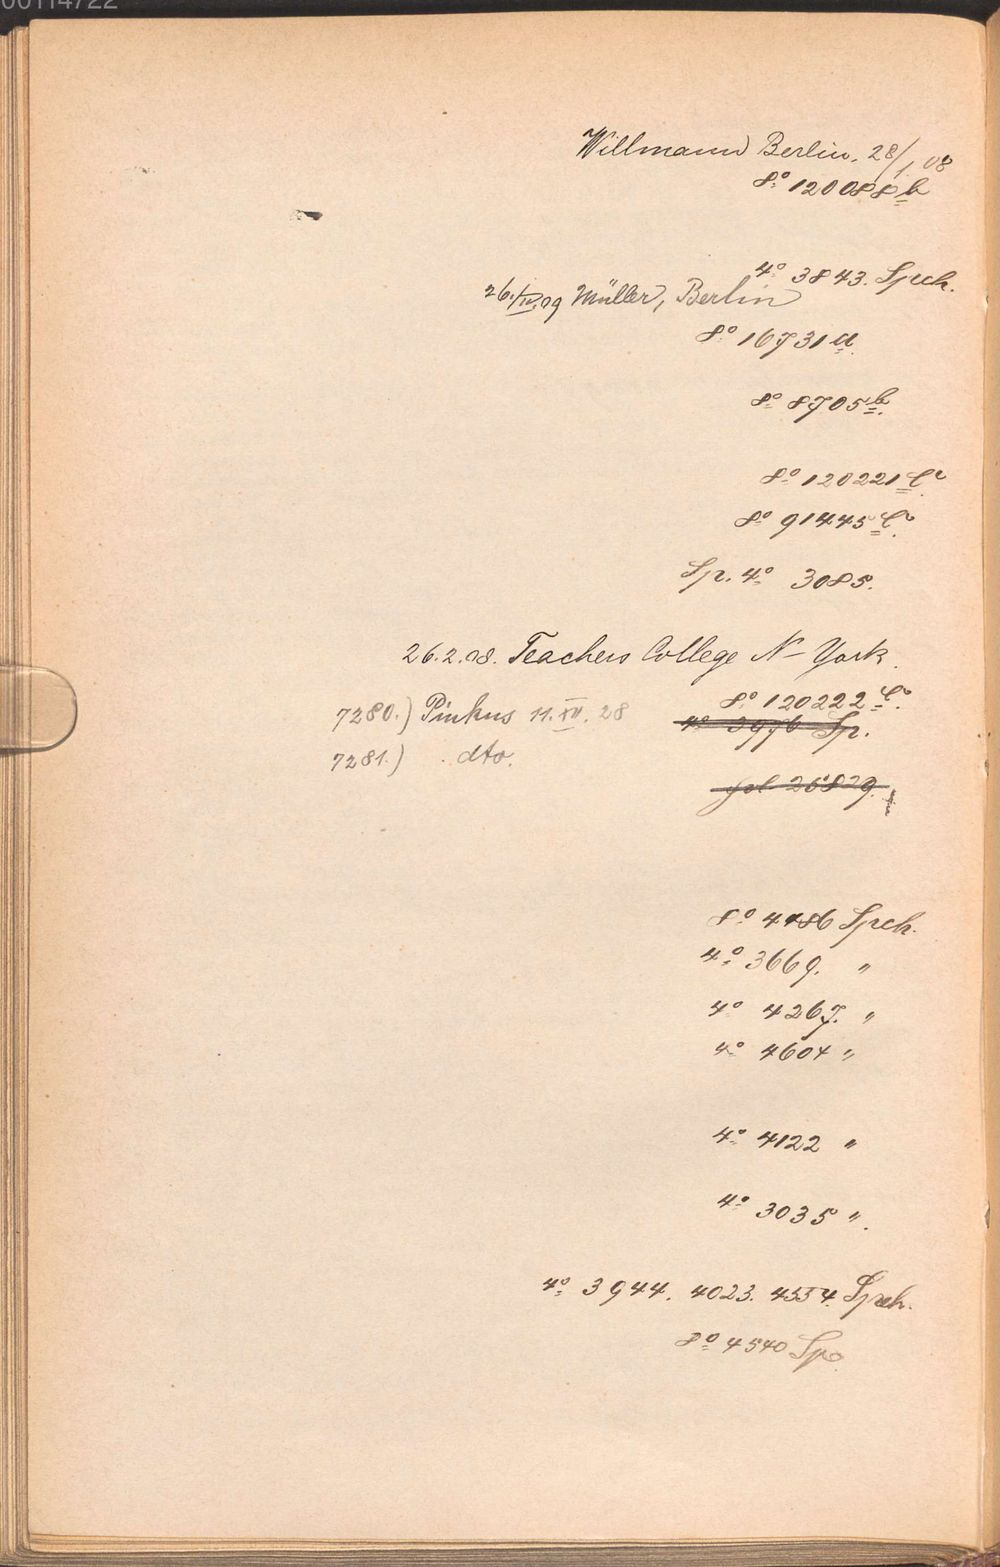 00114722
Willmann Berlin, 28/1 08
8° 120088 b
4° 3843. Spreh.
26./IV.09 Müller, Berlin
8° 16731 a.
8° 8705 b.
8° 120221 c.
8° 91445 c.
Sp. 4° 3085.
26.2.08. Teachers College N-York.
8° 120222 c.
7280.) Pinkus 11.XII.28
4° 3976 Sp.
7281.) dto.
fol 25829.
8° 4186 Spreh.
4° 3669. "
4° 4267. "
4° 4604 "
4° 4122 "
4° 3035 ".
4° 3944. 4023. 4554. Spreh.
8° 4540 Sp.